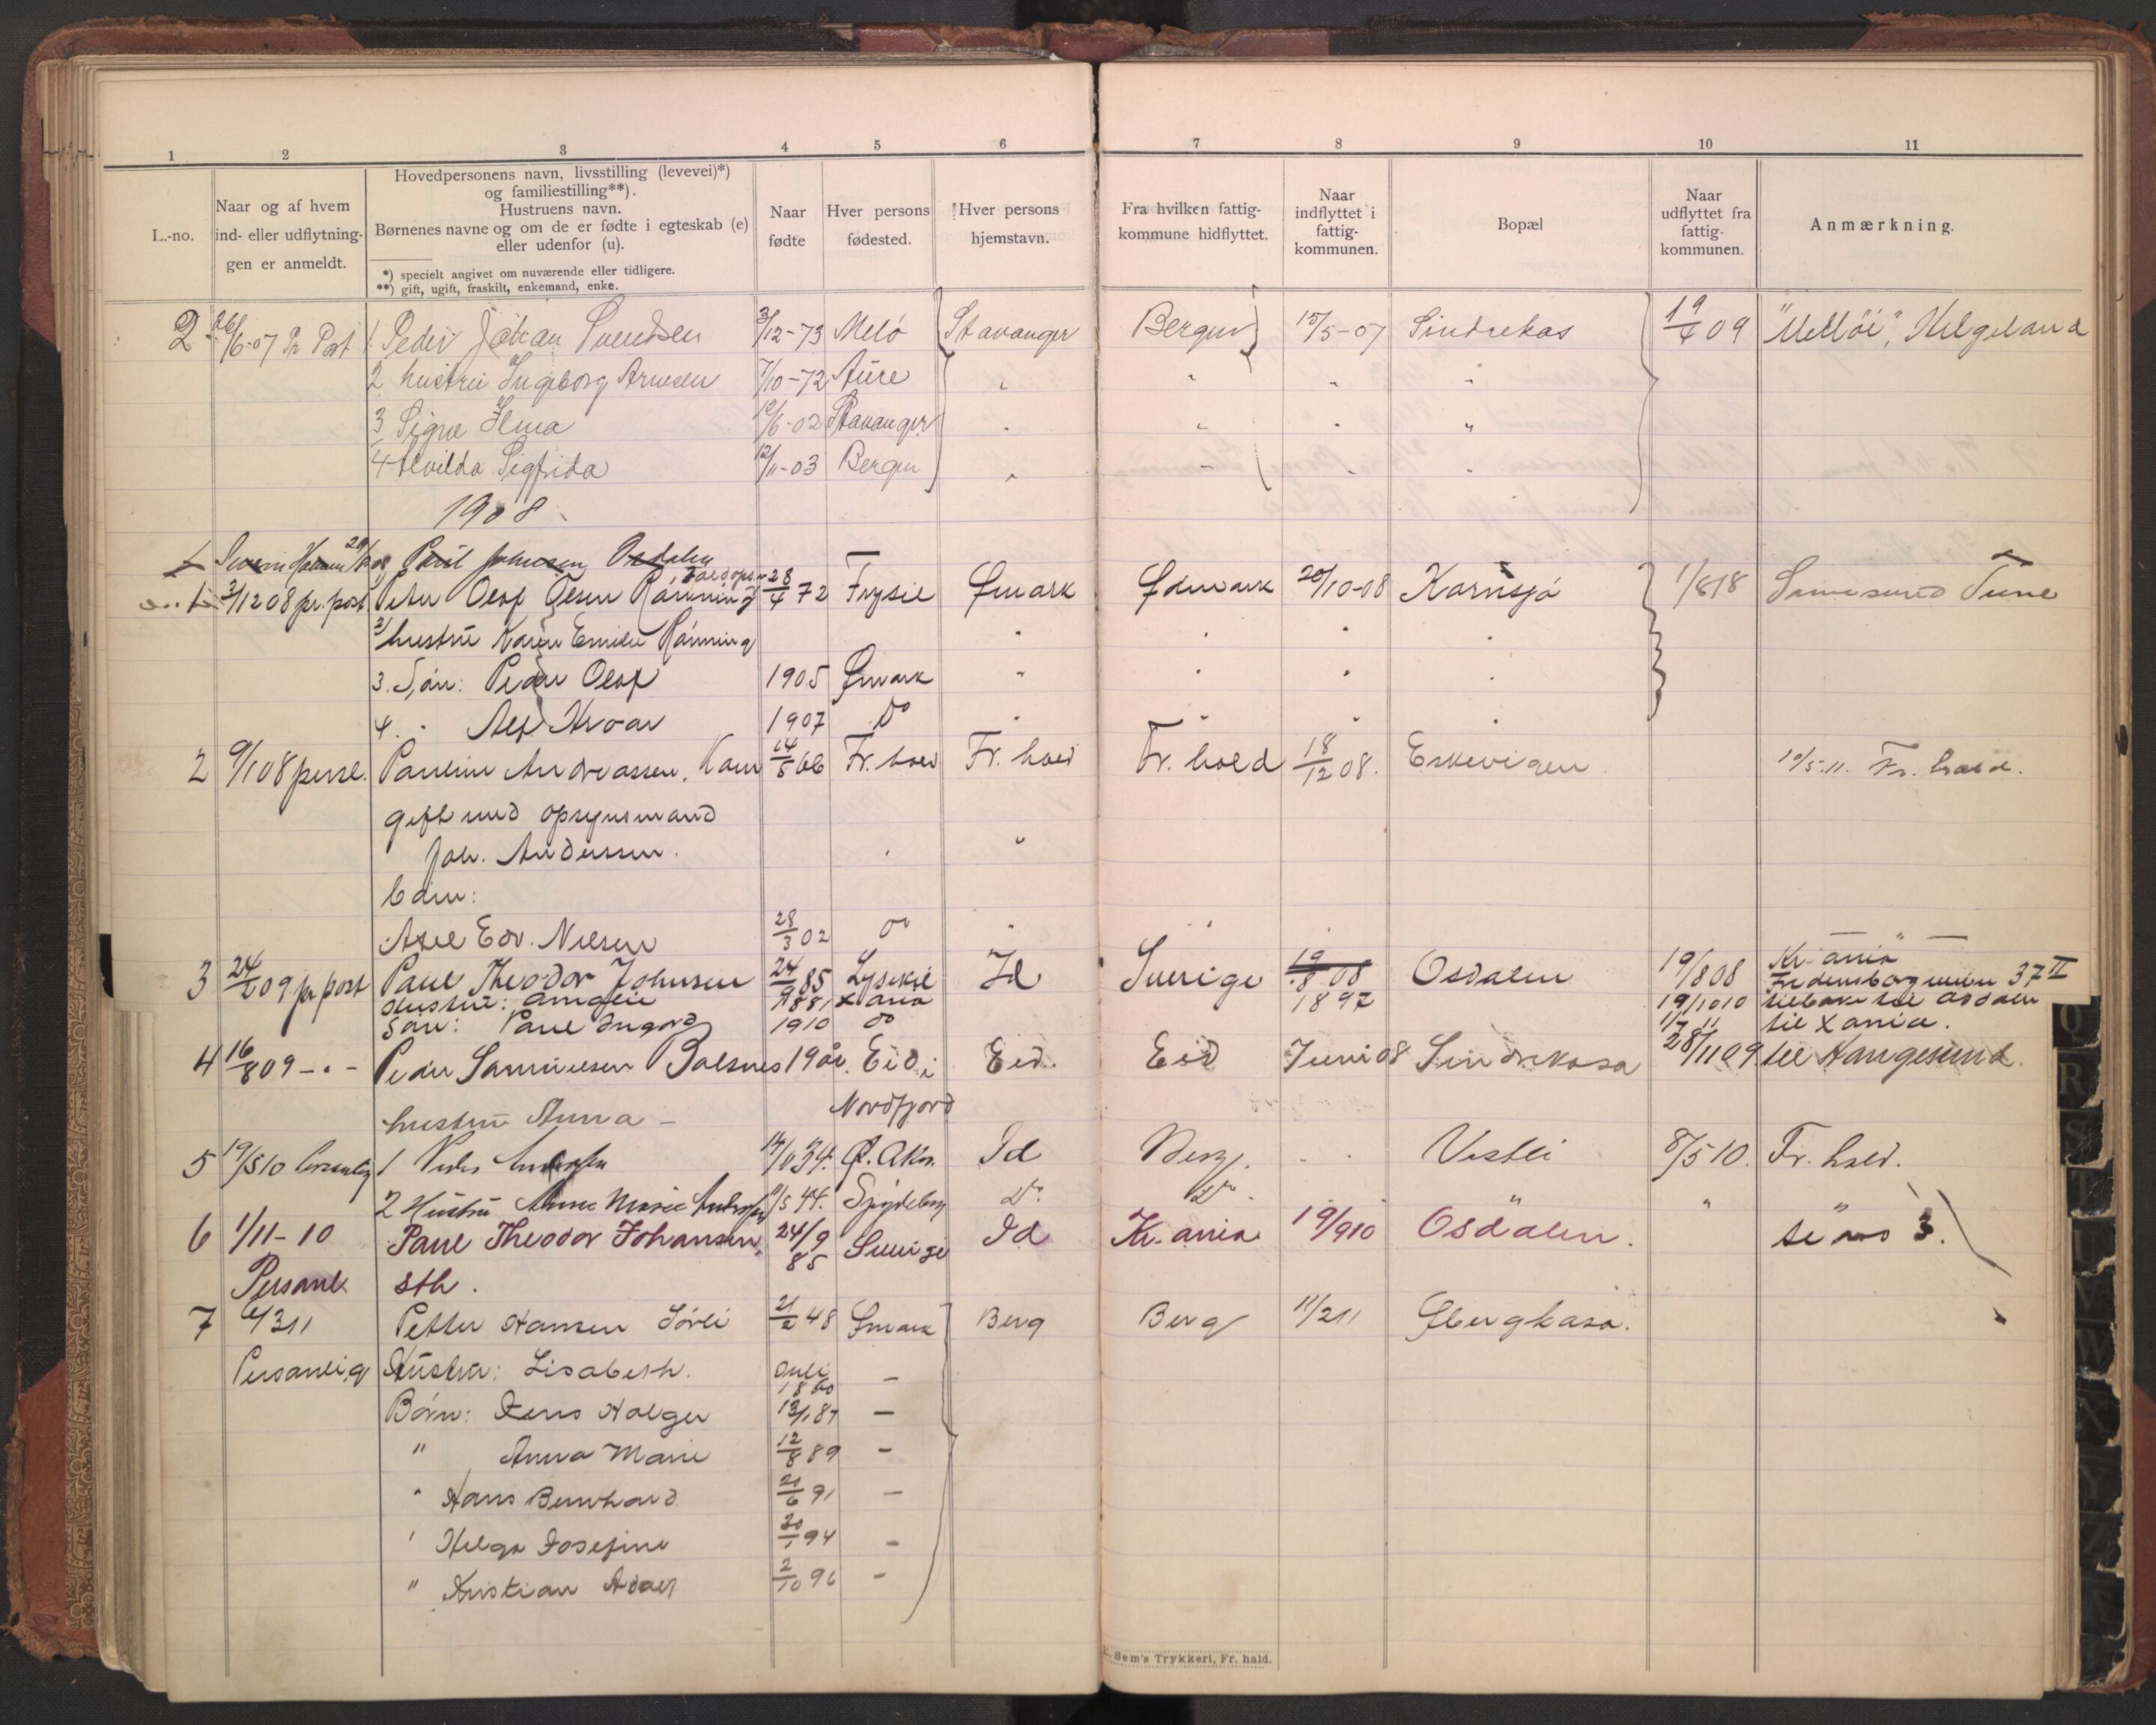 1 2 3 4 5 6 7 8 9 10 11
L.-no.
Naar og af hvem
ind- eller udflytnin-
gen er anmeldt.
Hovedpersonens navn, livsstilling (levevei)*)
og familiestilling**).
Hustruens navn.
Børnenes navne og om de er fødte i egteskab (e)
eller udenfor (u).
*) specielt angivet om nuværende eller tidligere.
**) gift, ugift, fraskilt, enkemand, enke.
Naar
fødte
Hver persons
fødested.
Hver persons
hjemstavn.
Fra hvilken fattig-
kommune hidflyttet.
Naar
indflyttet i
fattig-
kommunen.
Bopæl
Naar
udflyttet fra
fattig-
kommunen.
Anmærkning.
2 26/6-07 Pr Post 1 Peder Johan Svendsen 3/12-73 Melø Stavanger Bergen 15/5-07 Sindrekas 19/4 09 "Melløi", Helgeland
2 hustru Ingeborg Arnesen 7/10-72 Aure " " " "
3 Signe Elma /6-02 Stavanger " " " "
4 Alvilda Sigfrida 12/11-03 Bergen " " " "
1908
1 Severin Hansen Paul Johnsen Osdalen
1 3/12 08 pr. post 1) Peter Olaf Olsen Rønning 28/4 72 Trysil Ømark Ødmark 20/10-08 Kornsjø 1/8 18 Tune
2) hustru Karen Emilie Rønning " " " "
3. Søn: Peder Olaf 1905 Ømark " " " "
4. " Alf Hroar 1907 Do " " " "
2 9/1 08 persl. Pauline Andreassen, 14/5 66 Fr. hald Fr. hald Fr. hald 18/12 08. Eskevigen 10/5-11. Fr. hald.
gift med opsynsmand
Joh. Anderssen. " "
barn:
Axel Edv. Nilsen 28/3 02 do " "
3 24/2 09 pr post Paul Theodor Johnsen 24/9 85 Lysekil Id Sverige 19/8 08 Osdalen 19/8 08 Kr.ania
Fredensborgveien 37 II
Hustru: Amalie 1881 Xania 1897 19/10 10 tilbake til Osdalen
Søn: Paul Ingard 1910 do 1/7 11 til Xania.
4 16/8 09 - " - Peder Samuelsen Balsnes 19 år. Eid i Eid. Eid Juni 08 Sindrekasa 28/11 09 til Haugesund.
Nordfjord
hustru Anna -
5 19/5 10 Personlig 1 Peder Andersen 14/6 34. Ø. Aker. Id Berg. " " Vestli 8/5 10. Fr. hald.
2 Hustru Anne Marie Andersen /5 44. Spydeberg Do. Do. " "
6 1/11-10 Paul Theodor Johansen, 24/9 85 Sverige Id Kr.ania 19/9 10 Osdalen. se no 3.
Personl. sth.
7 4/3 11 Petter Hansen Sørli 21/2 48 Ømark Berg Berg 11/2 11 Øbergkasa.
Personlig Hustru: Lisabeth. Juli 1860 -
Børn: Jens Holger 13/1 87 -
" Anna Marie 12/8 89 -
" Hans Bernhard 21/6 91 -
" Helga Josefine 30/1 94 -
" Kristian Adolf 2/10 96 -
Sem's Trykkeri, Fr. hald.
O
R
X
Y
Z